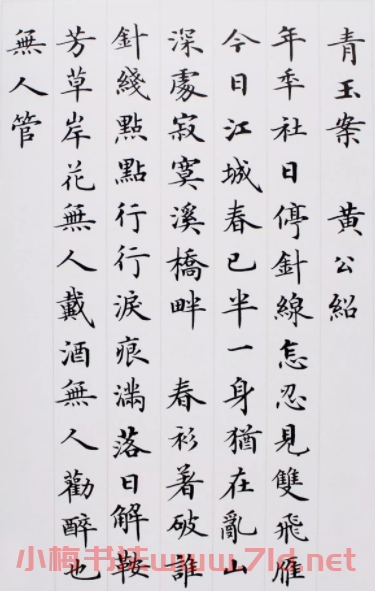 青玉案 黄公紹
年秊社日停針線怎忍見雙飛雁
今日江城春已半一身猶在亂山
深處寂寞溪橋畔 春衫著破誰
針綫點點行行淚痕滿落日解鞍
芳草岸花無人戴酒無人勸醉也
無人管
小梅书法www.7ld.net